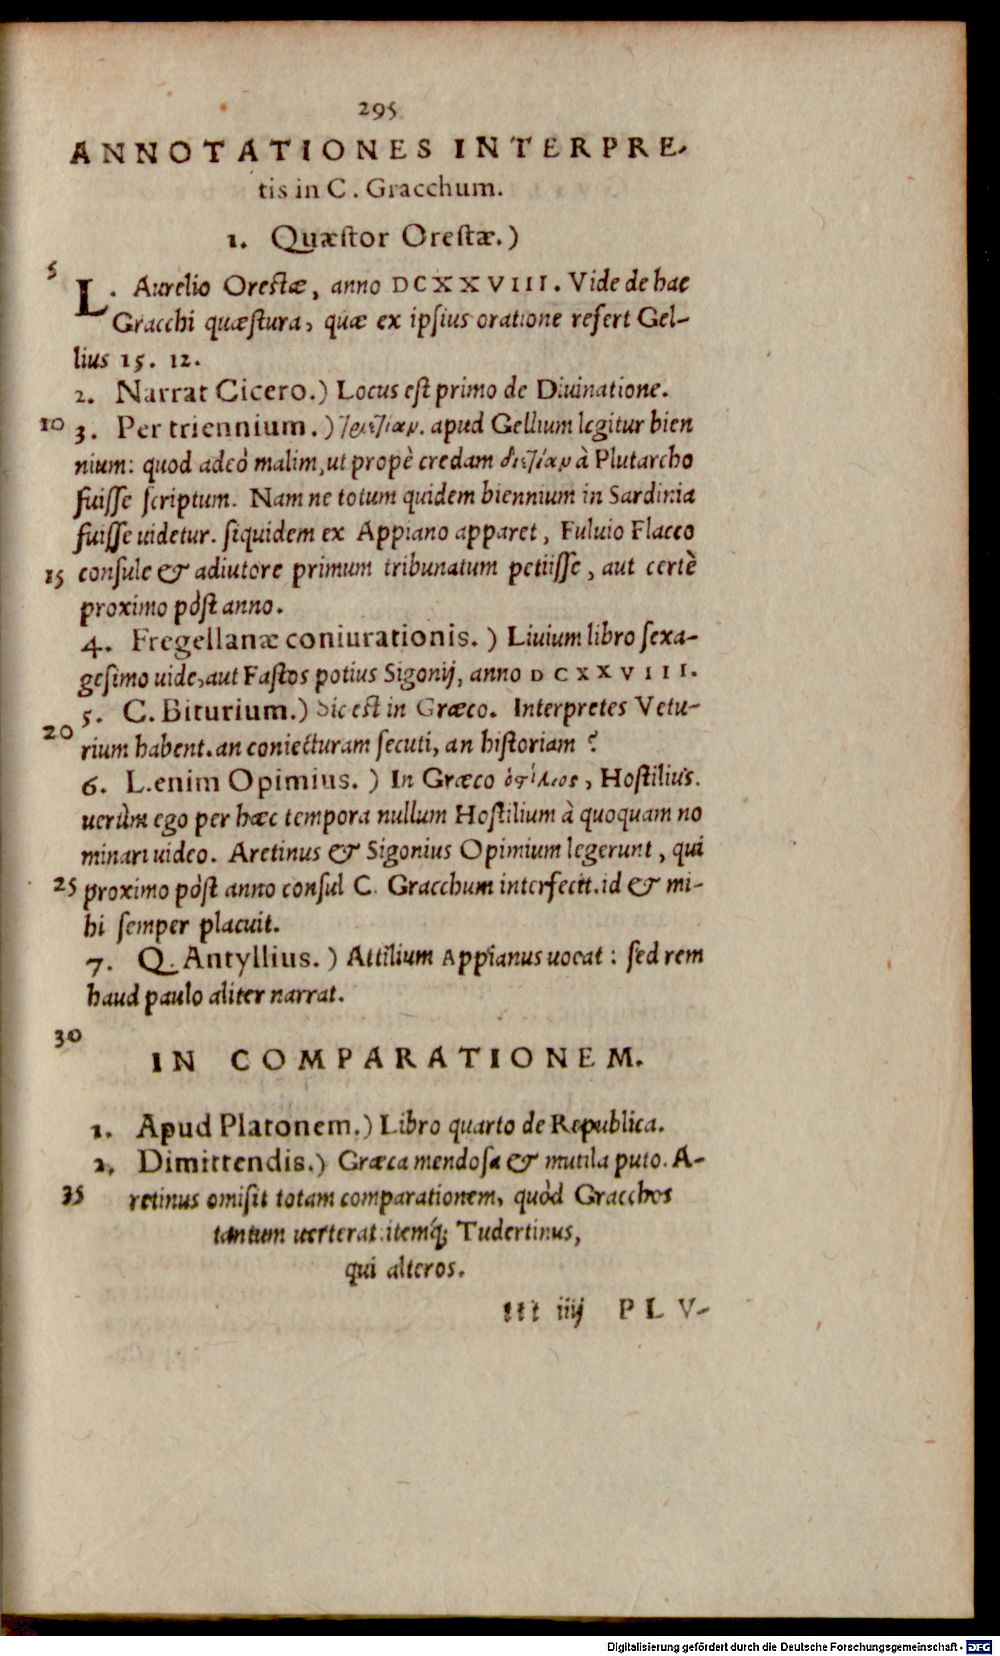 295
ANNOTATIONES INTERPRE-
tis in C. Gracchum.
1. Quæstor Orestæ.)
5
L. Aurelio Orestæ, anno DCXXVIII. Vide de hac
Gracchi quæstura, quæ ex ipsius oratione refert Gel-
lius 15. 12.
2. Narrat Cicero.) Locus est primo de Diuinatione.
10 3. Per triennium.) apud Gellium legitur bien
nium: quod adeò malim, ut propè credam à Plutarcho
fuisse scriptum. Nam ne totum quidem biennium in Sardinia
fuisse uidetur. siquidem ex Appiano apparet, Fuluio Flacco
15 consule & adiutore primum tribunatum petiisse, aut certè
proximo pòst anno.
4. Fregellanæ coniurationis.) Liuium libro sexa-
gesimo uide, aut Fastos potius Sigonij, anno DCXXVIII.
5. C. Biturium.) Sic est in Græco. Interpretes Vetu-
20 rium habent. an coniecturam secuti, an historiam ?
6. L. enim Opimius.) In Græco, Hostilius.
uerùm ego per hæc tempora nullum Hostilium à quoquam no
minari uideo. Aretinus & Sigonius Opimium legerunt, qui
25 proximo pòst anno consul C. Gracchum interfecit. id & mi-
hi semper placuit.
7. Q. Antyllius.) Attilium Appianus uocat : sed rem
haud paulo aliter narrat.
30
IN COMPARATIONEM.
1. Apud Platonem.) Libro quarto de Republica.
2. Dimittendis.) Græca mendosa & mutila puto. A-
35 retinus omisit totam comparationem, quòd Gracchos
tantum uerterat. itemq́; Tudertinus,
qui alteros.
ttt iiij PLV-
Digitalisierung gefördert durch die Deutsche Forschungsgemeinschaft - DFG